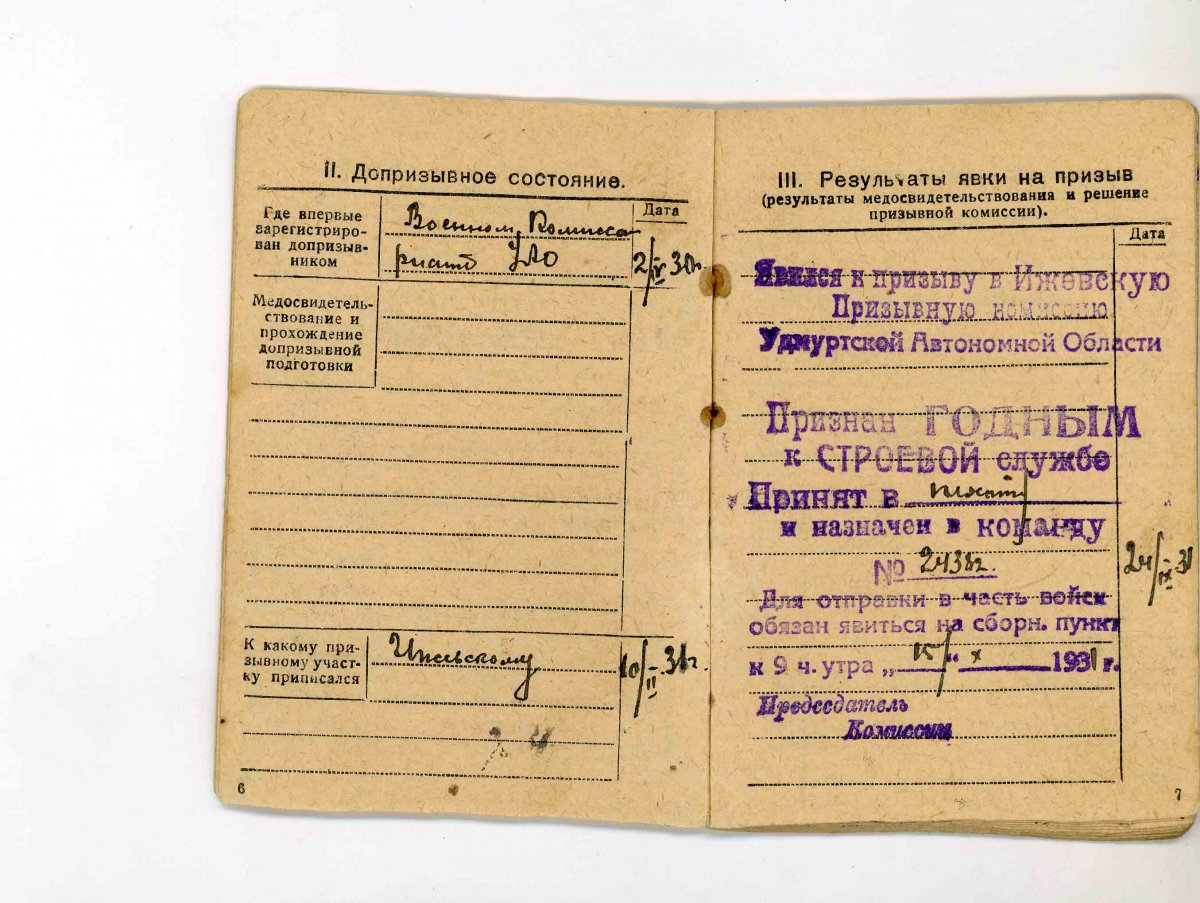 II. Допризывное состояние.
Где впервые
зарегистриро-
ван допризыв-
ником
Военном Комисса
риате УАО
Дата
2/V 30г.
Медосвидетель-
ствование и
прохождение
допризывной
подготовки
К какому при-
зывному участ-
ку приписался
10/II 31г.
6
III. Результаты явки на призыв
(результаты медосвидетельствования и решение
призывной комиссии).
Дата
Явился к призыву в Ижевскую
Призывную комиссию
Удмуртской Автономной Области
Признан ГОДНЫМ
к СТРОЕВОЙ службе
Принят в пехоту
и назначен в команду
№ 2438г.
24/IX 31
Для отправки в часть войск
обязан явиться на сборн. пункт
к 9 ч. утра „15" X 1931 г.
Председатель
Комиссии
7